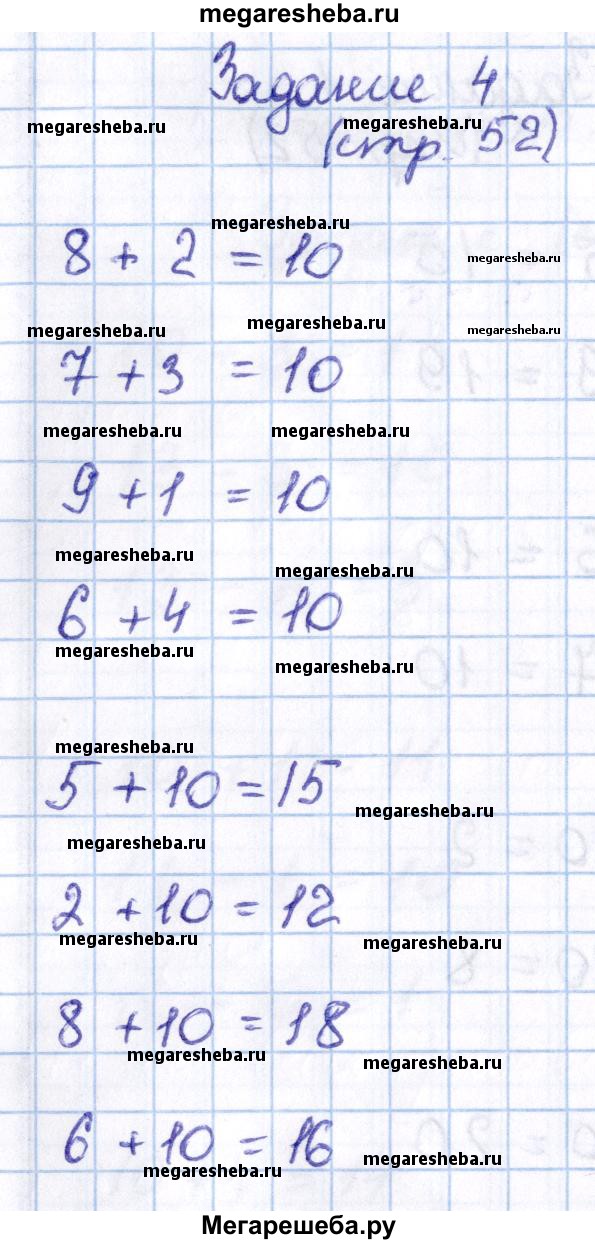 megaresheba.ru
Задание 4
megaresheba.ru megaresheba.ru
(стр. 52)
megaresheba.ru
8 + 2 = 10 megaresheba.ru
megaresheba.ru megaresheba.ru megaresheba.ru
7 + 3 = 10
megaresheba.ru megaresheba.ru
9 + 1 = 10
megaresheba.ru megaresheba.ru
6 + 4 = 10
megaresheba.ru megaresheba.ru
megaresheba.ru
5 + 10 = 15 megaresheba.ru
megaresheba.ru
2 + 10 = 12
megaresheba.ru megaresheba.ru
8 + 10 = 18
megaresheba.ru megaresheba.ru
6 + 10 = 16
megaresheba.ru megaresheba.ru
Мегарешеба.ру